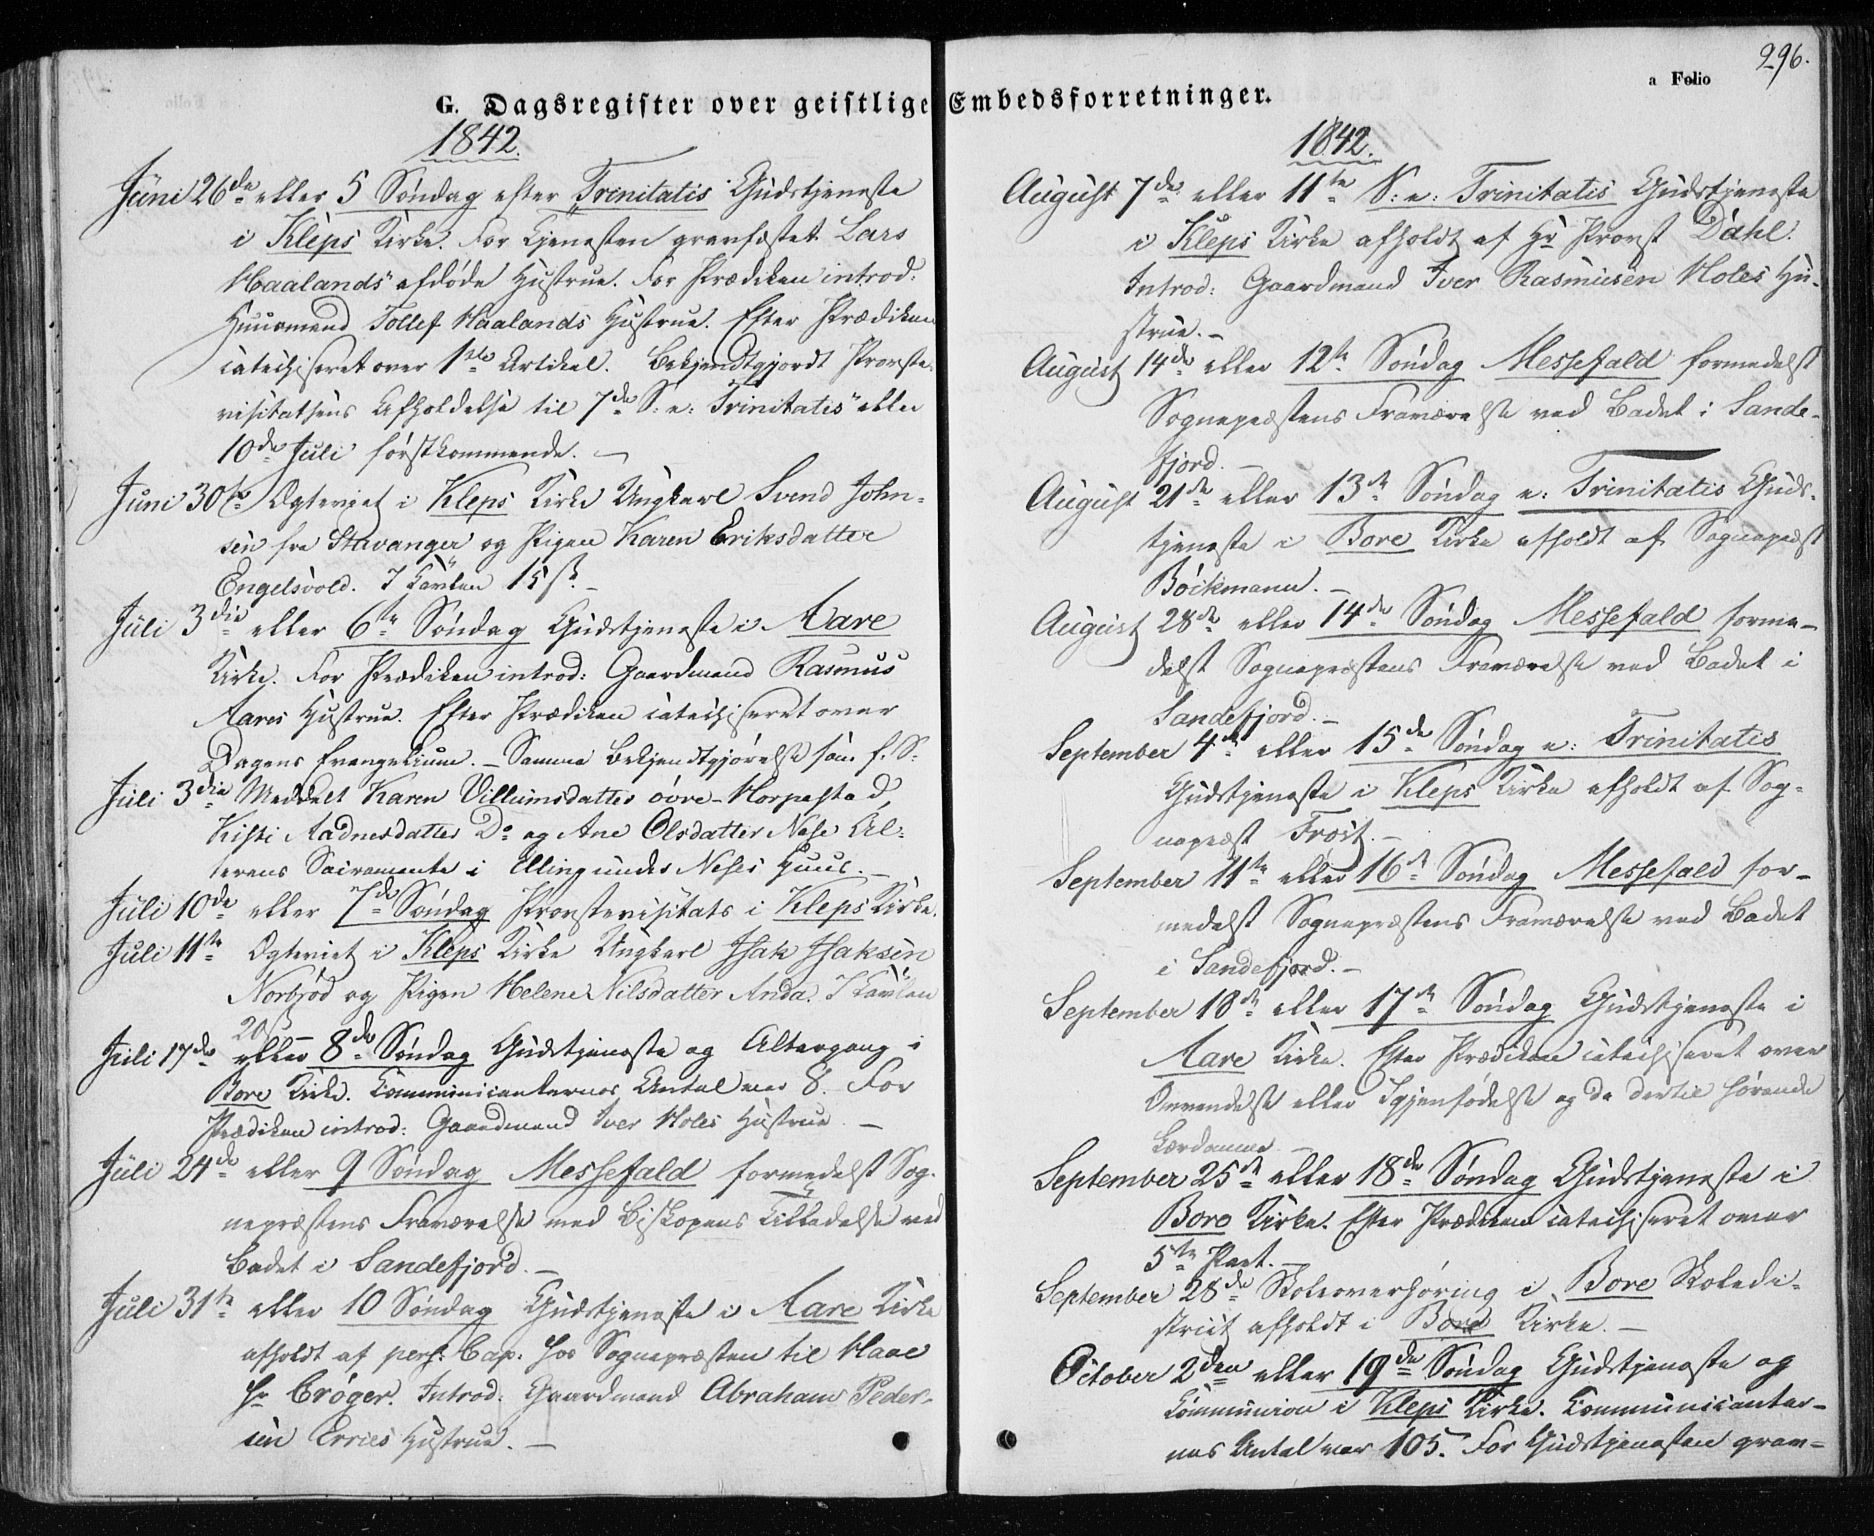 296.
a Folio
G. Dagsregister over geistlige Embedsforretninger.
1842.
Juni 26de eller 5 Søndag efter Trinitatis Gudstjeneste
i Kleps Kirke. Før Tjenesten gravfæstet Lars
Haalands afdøde Hustrue. Før Prædiken introd:
Huusmand Tollef Haalands Hustrue. Efter Prædiken
catechiseret over 1ste Artikel. Bekjendtgjordt Provste-
visitatsens Afholdelse til 7de S: e: Trinitatis eller
10de Juli førstkommende. –
Juni 30te Ægteviet i Kleps Kirke Ungkarl Svend John-
sen fra Stavanger og Pigen Karen Eriksdatter
Engelsvold. I Tavlen 15 ß. –
Juli 3die eller 6te Søndag Gudstjeneste i Aare
Kirke. Før Prædiken introd: Gaardmand Rasmus
Aares Hustrue. Efter Prædiken catechiseret over
Dagens Evangelium. – Samme Bekjendtgjørelse som f. S:
Juli 3die Meddelt Karen Villumsdatter øvre-Horpestad,
Kisti Aadnesdatter Do og Ane Olsdatter Nese Al-
terens Sacramente i Elling Neses Huus. –
Juli 10de eller 7de Søndag Provstevisitats i Kleps Kirke.
Juli 11te Ægteviet i Kleps Kirke Ungkarl Isak Isaksen
Norbjød og Pigen Helene Nilsdatter Anda. I Tavlen
20 ß –
Juli 17de eller 8de Søndag Gudstjeneste og Altergang i
Bore Kirke. Communicanternes Antal var 8. Før
Prædiken introd: Gaardmand Iver Holes Hustrue. –
Juli 24de eller 9 Søndag Messefald formedelst Sog-
nepræstens Fraværelse med Biskopens Tilladelse ved
Badet i Sandefjord. –
Juli 31te eller 10 Søndag Gudstjeneste i Aare Kirke
afholdt af pers: Cap. hos Sognepræsten til Haae
Hr Crøger. Introd: Gaardmand Abraham Peder-
sen Erries Hustrue. –
1842.
August 7de eller 11te S: e: Trinitatis Gudstjeneste
i Kleps Kirke afholdt af Hr Provst Dahl.
Introd: Gaardmand Iver Rasmusen Holes Hu-
strue. –
August 14de eller 12te Søndag Messefald formedelst
Sognepræstens Fraværelse ved Badet i Sande-
fjord. –
August 21de eller 13de Søndag e: Trinitatis Guds-
tjeneste i Bore Kirke afholdt af Sognepræst
Böckmann. –
August 28de eller 14de Søndag Messefald forme-
delst Sognepræstens Fraværelse ved Badet i
Sandefjord. –
September 4de eller 15de Søndag e: Trinitatis
Gudstjeneste i Kleps Kirke afholdt af Sog-
nepræst Frost. –
September 11te eller 16de Søndag Messefald for-
medelst Sognepræstens Fraværelse ved Badet
i Sandefjord. –
September 18de eller 17de Søndag Gudstjeneste i
Aare Kirke. Efter Prædiken catechiseret over
Omvendelse eller Igjenfødelse og de dertil hørende
Lærdomme –
September 25de eller 18de Søndag Gudstjeneste i
Bore Kirke. Efter Prædiken catechiseret over
5te Part. –
September 28de Skoleoverhøring i Bore Skoledi-
strict afholdt i Bore Kirke. –
October 2den eller 19de Søndag Gudstjeneste og
Communion i Kleps Kirke. Communicanter-
nes Antal var 105. Før Gudstjenesten grav-